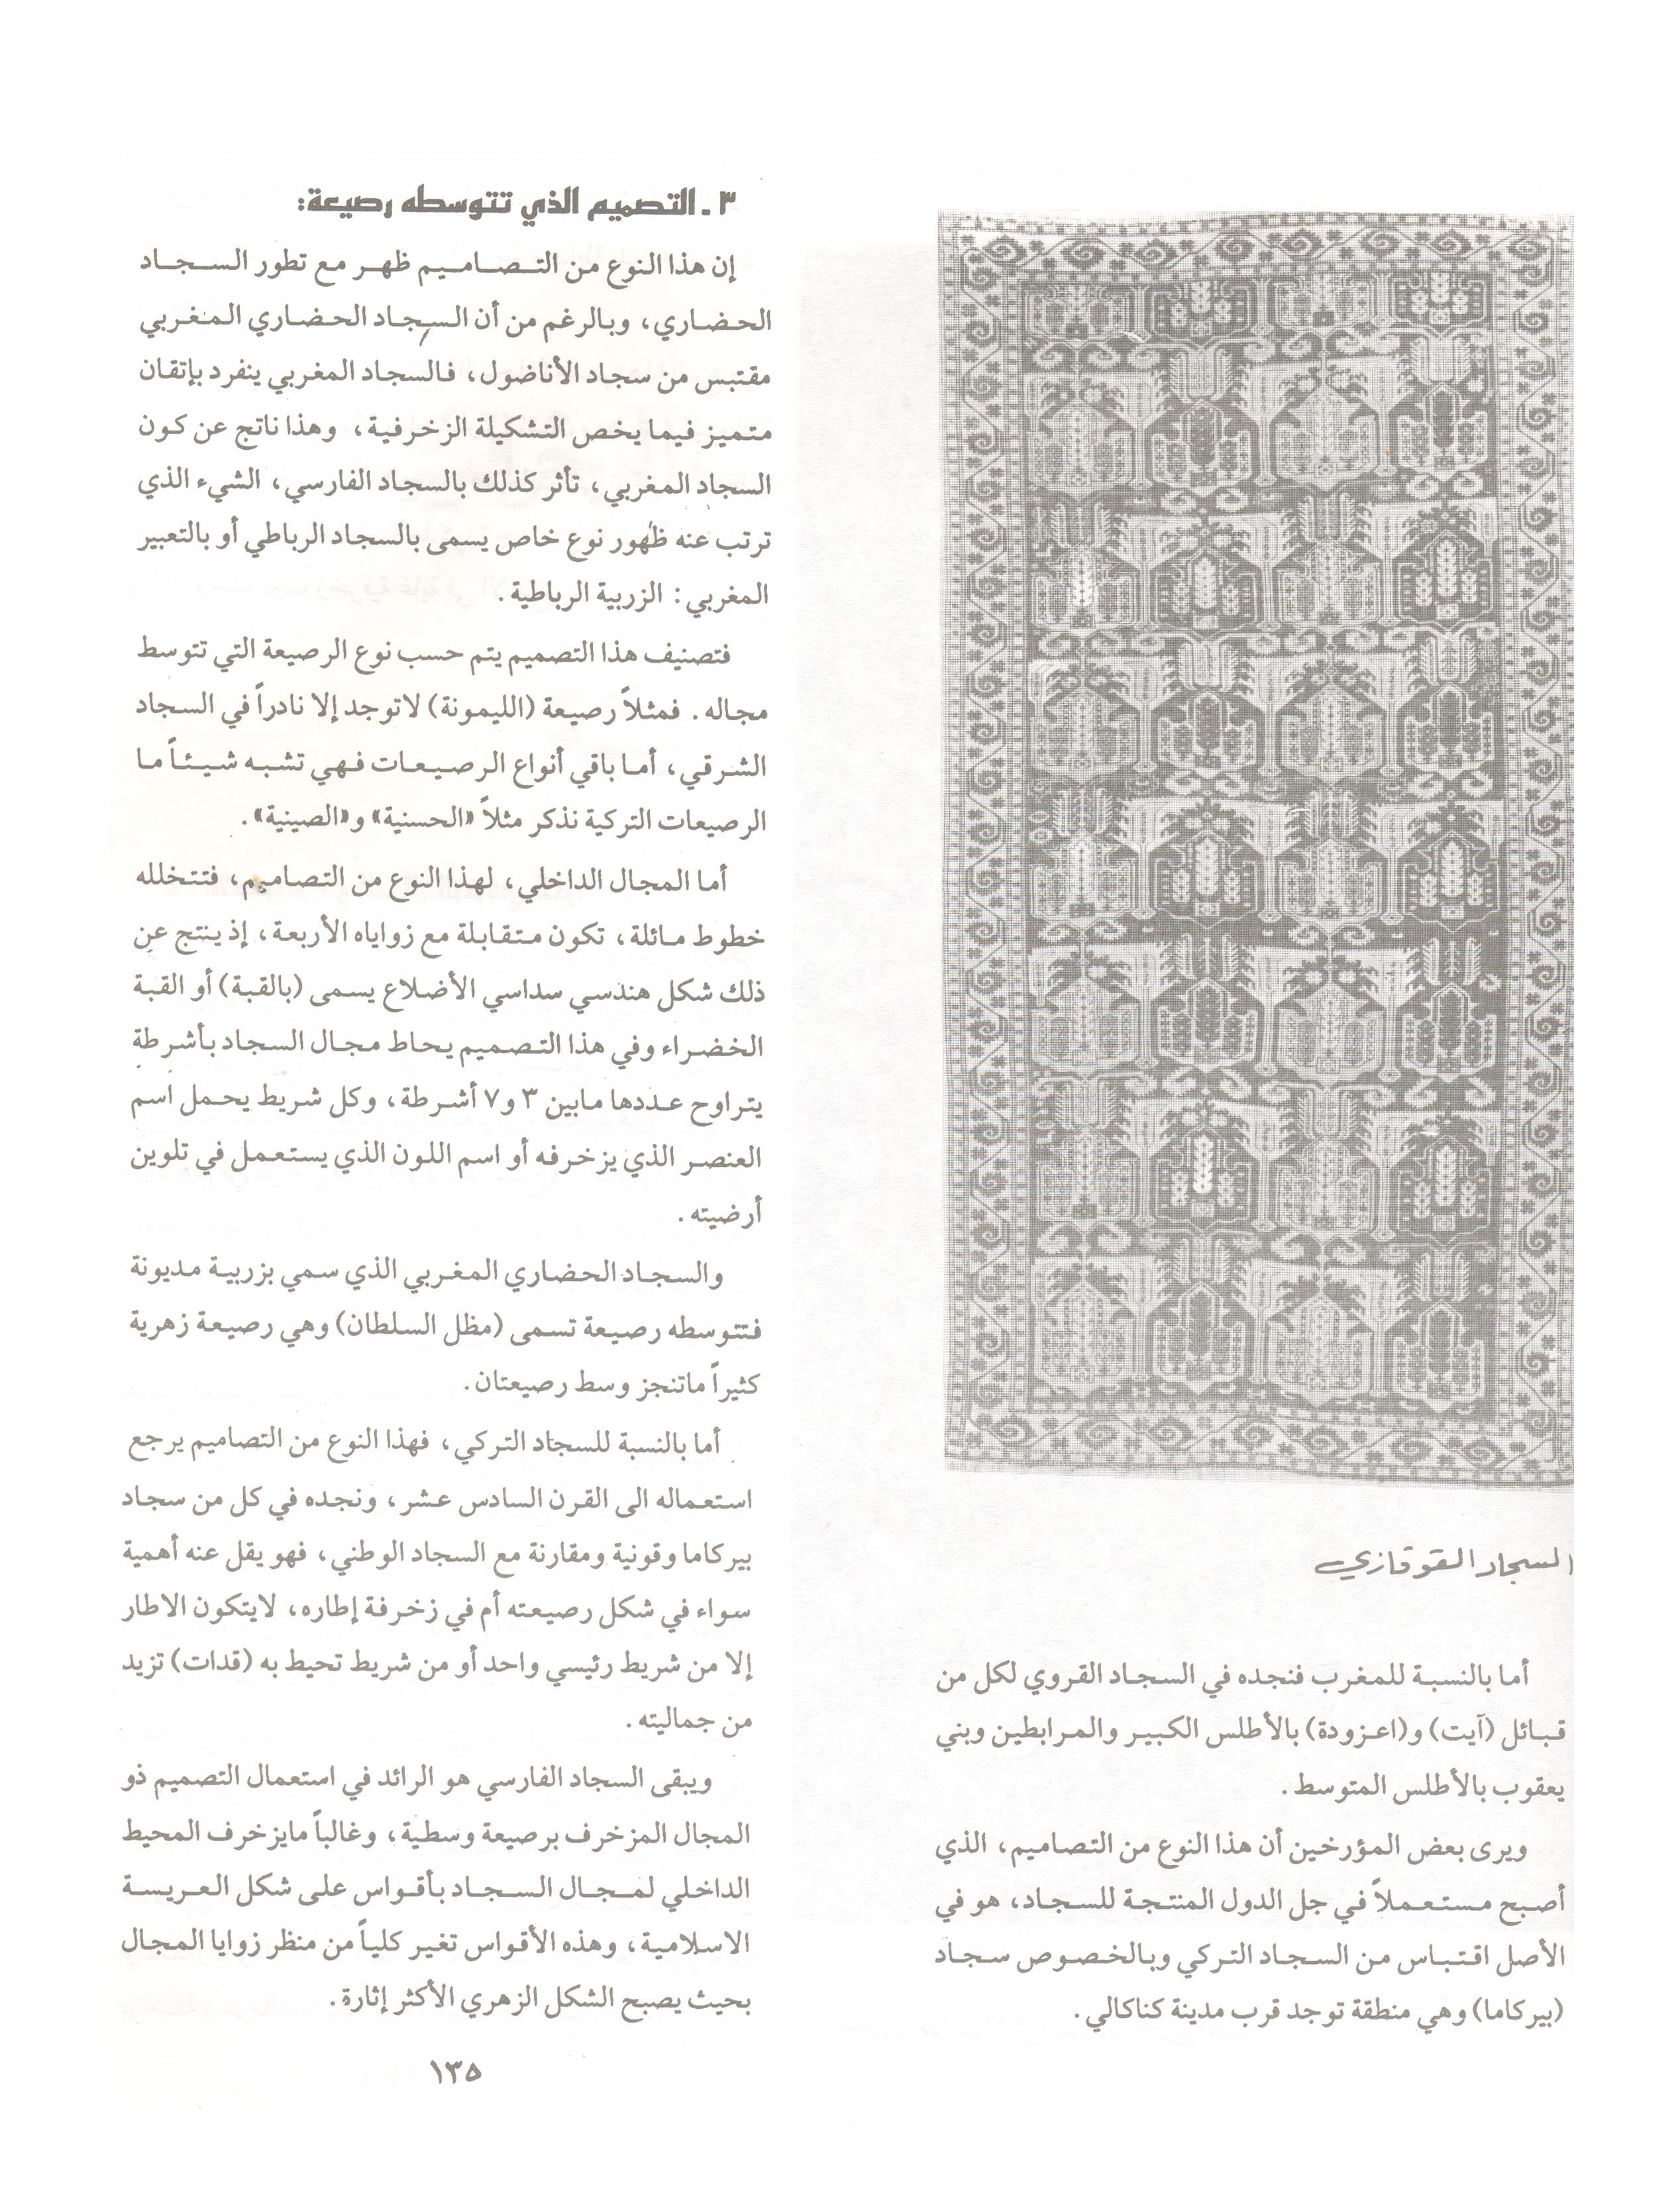 السجاد القوقازي
أما بالنسبة للمغرب فنجده في السجاد القروي لكل من
قبائل (آيت) و(اعزودة) بالأطلس الكبير والمرابطين وبني
يعقوب بالأطلس المتوسط.
ويرى بعض المؤرخين أن هذا النوع من التصاميم، الذي
أصبح مستعملاً في جل الدول المنتجة للسجاد، هو في
الأصل اقتباس من السجاد التركي وبالخصوص سجاد
(بيركاما) وهي منطقة توجد قرب مدينة كناكالي.
٣ - التصميم الذي تتوسطه رصيعة:
إن هذا النوع من التصاميم ظهر مع تطور السجاد
الحضاري، وبالرغم من أن السجاد الحضاري المغربي
مقتبس من سجاد الأناضول، فالسجاد المغربي ينفرد بإتقان
متميز فيما يخص التشكيلة الزخرفية، وهذا ناتج عن كون
السجاد المغربي، تأثر كذلك بالسجاد الفارسي، الشيء الذي
ترتب عنه ظهور نوع خاص يسمى بالسجاد الرباطي أو بالتعبير
المغربي: الزربية الرباطية.
فتصنيف هذا التصميم يتم حسب نوع الرصيعة التي تتوسط
مجاله. فمثلاً رصيعة (الليمونة) لاتوجد إلا نادراً في السجاد
الشرقي، أما باقي أنواع الرصيعات فهي تشبه شيئاً ما
الرصيعات التركية نذكر مثلاً «الحسنية» و«الصينية».
أما المجال الداخلي، لهذا النوع من التصاميم، فتتخلله
خطوط مائلة، تكون متقابلة مع زواياه الأربعة، إذ ينتج عن
ذلك شكل هندسي سداسي الأضلاع يسمى (بالقبة) أو القبة
الخضراء وفي هذا التصميم يحاط مجال السجاد بأشرطة
يتراوح عددها مابين ٣ و٧ أشرطة، وكل شريط يحمل اسم
العنصر الذي يزخرفه أو اسم اللون الذي يستعمل في تلوين
أرضيته.
والسجاد الحضاري المغربي الذي سمي بزربية مديونة
فتتوسطه رصيعة تسمى (مظل السلطان) وهي رصيعة زهرية
كثيراً ماتنجز وسط رصيعتان.
أما بالنسبة للسجاد التركي، فهذا النوع من التصاميم يرجع
استعماله الى القرن السادس عشر، ونجده في كل من سجاد
بيركاما وقونية ومقارنة مع السجاد الوطني، فهو يقل عنه أهمية
سواء في شكل رصيعته أم في زخرفة إطاره، لايتكون الاطار
إلا من شريط رئيسي واحد أو من شريط تحيط به (قدات) تزيد
من جماليته.
ويبقى السجاد الفارسي هو الرائد في استعمال التصميم ذو
المجال المزخرف برصيعة وسطية، وغالباً مايزخرف المحيط
الداخلي لمجال السجاد بأقواس على شكل العريسة
الاسلامية، وهذه الأقواس تغير كلياً من منظر زوايا المجال
بحيث يصبح الشكل الزهري الأكثر إثارة.
١٣٥